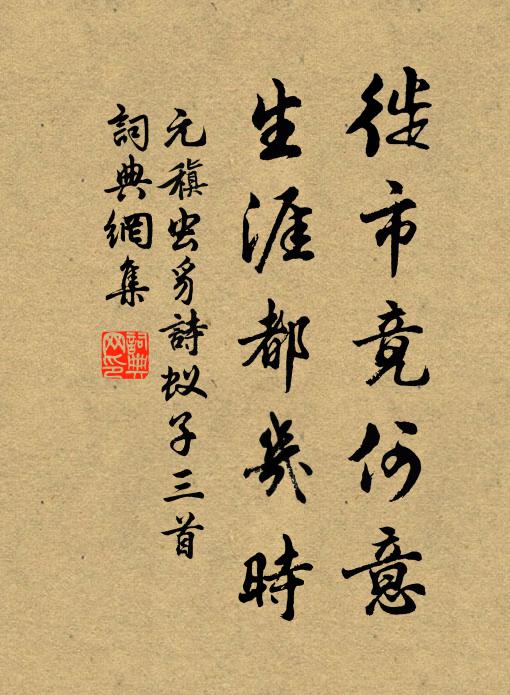 徙市竟何意
生涯都幾時
元稹虫豸詩蚁子三首
詞典網集
詞典网印